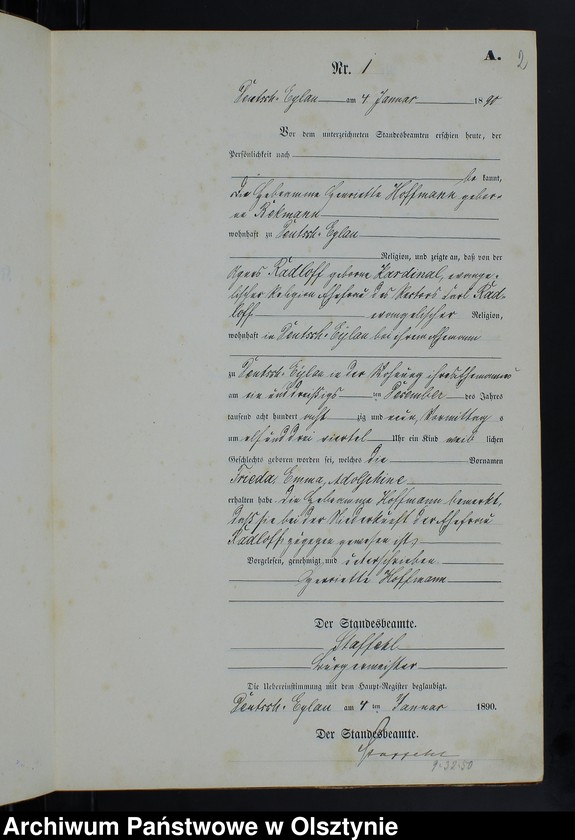 A.
2
Nr. 1
Deutsch-Eylau am 4 Januar 1890
Vor dem unterzeichneten Standesbeamten erschien heute, der
Persönlichkeit nach
be kannt,
die Hebeamme Henriette Hoffmann gebor-
ne Rekmann
wohnhaft zu Deutsch-Eylau
Religion, und zeigte an, daß von der
Radloff geborne Kardinal, evange-
lischer Religion Ehefrau des Carl Rad-
loff evangelischer Religion,
wohnhaft in Deutsch-Eylau bei ihrem Ehemann
zu Deutsch-Eylau in der Wohnung ihres Ehemannes
am ein und dreißigs ten Dezember des Jahres
tausend acht hundert acht zig und neun, Vormittag s
um elf und drei viertel Uhr ein Kind weib lichen
Geschlechts geboren worden sei, welches die Vornamen
Frieda, Emma, Adolphine
erhalten habe die Hebeamme Hoffmann bemerkt,
daß sie bei der Niederkunft der Ehefrau
Radloff zugegen gewesen ist,
Vorgelesen, genehmigt und unterschrieben.
Henriette Hoffmann
Der Standesbeamte.
Staffehl
Bürgermeister
Die Uebereinstimmung mit dem Haupt-Register beglaubigt.
Deutsch-Eylau am 4 ten Januar 1890.
Der Standesbeamte.
Staffehl
Archiwum Państwowe w Olsztynie